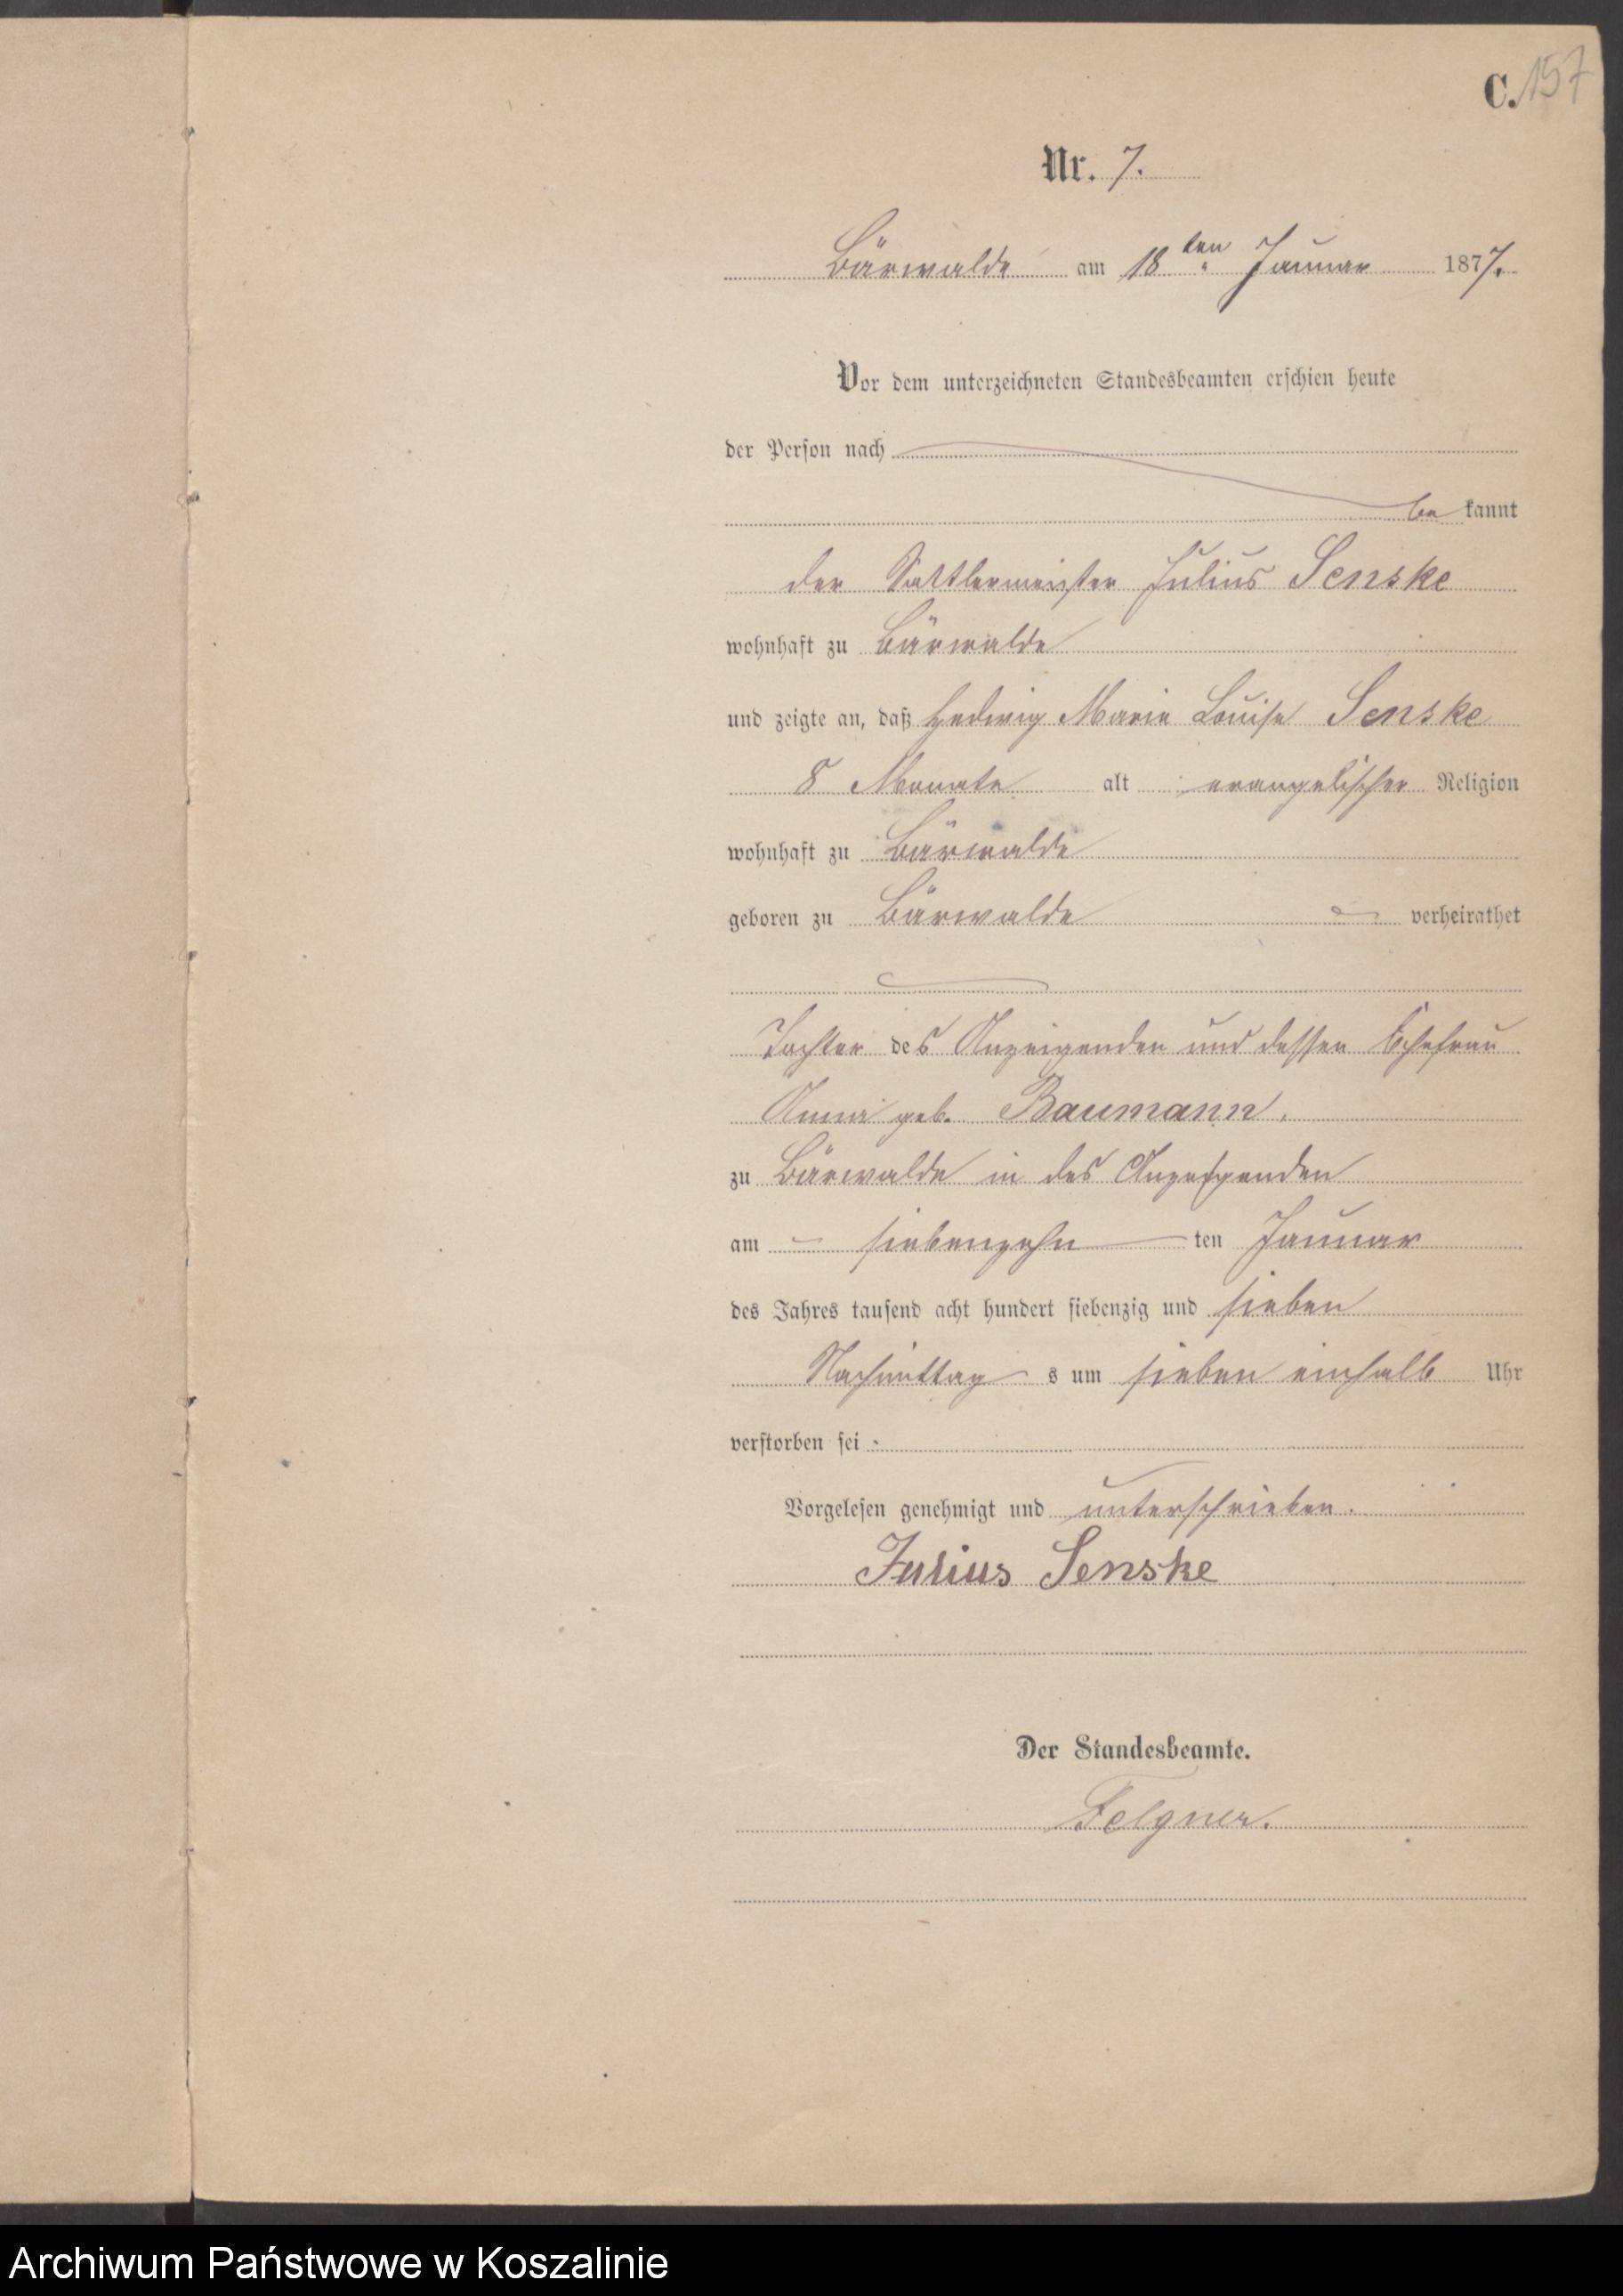 C. 157
Nr. 7.
Bärwalde am 18ten Januar 1877.
Vor dem unterzeichneten Standesbeamten erschien heute
der Person nach
be kannt
der Sattlermeister Julius Senske
wohnhaft zu Bärwalde
und zeigte an, daß Hedwig Marie Louise Senske
8 Monate alt evangelischer Religion
wohnhaft zu Bärwalde
geboren zu Bärwalde verheirathet
Tochter des Anzeigenden und dessen Ehefrau
Anna geb. Baumann,
zu Bärwalde in des Anzeigenden
am siebenzehn ten Januar
des Jahres tausend acht hundert siebenzig und sieben
Nachmittag s um sieben einhalb Uhr
verstorben sei.
Vorgelesen genehmigt und unterschrieben.
Julius Senske
Der Standesbeamte.
Felgner.
Archiwum Państwowe w Koszalinie